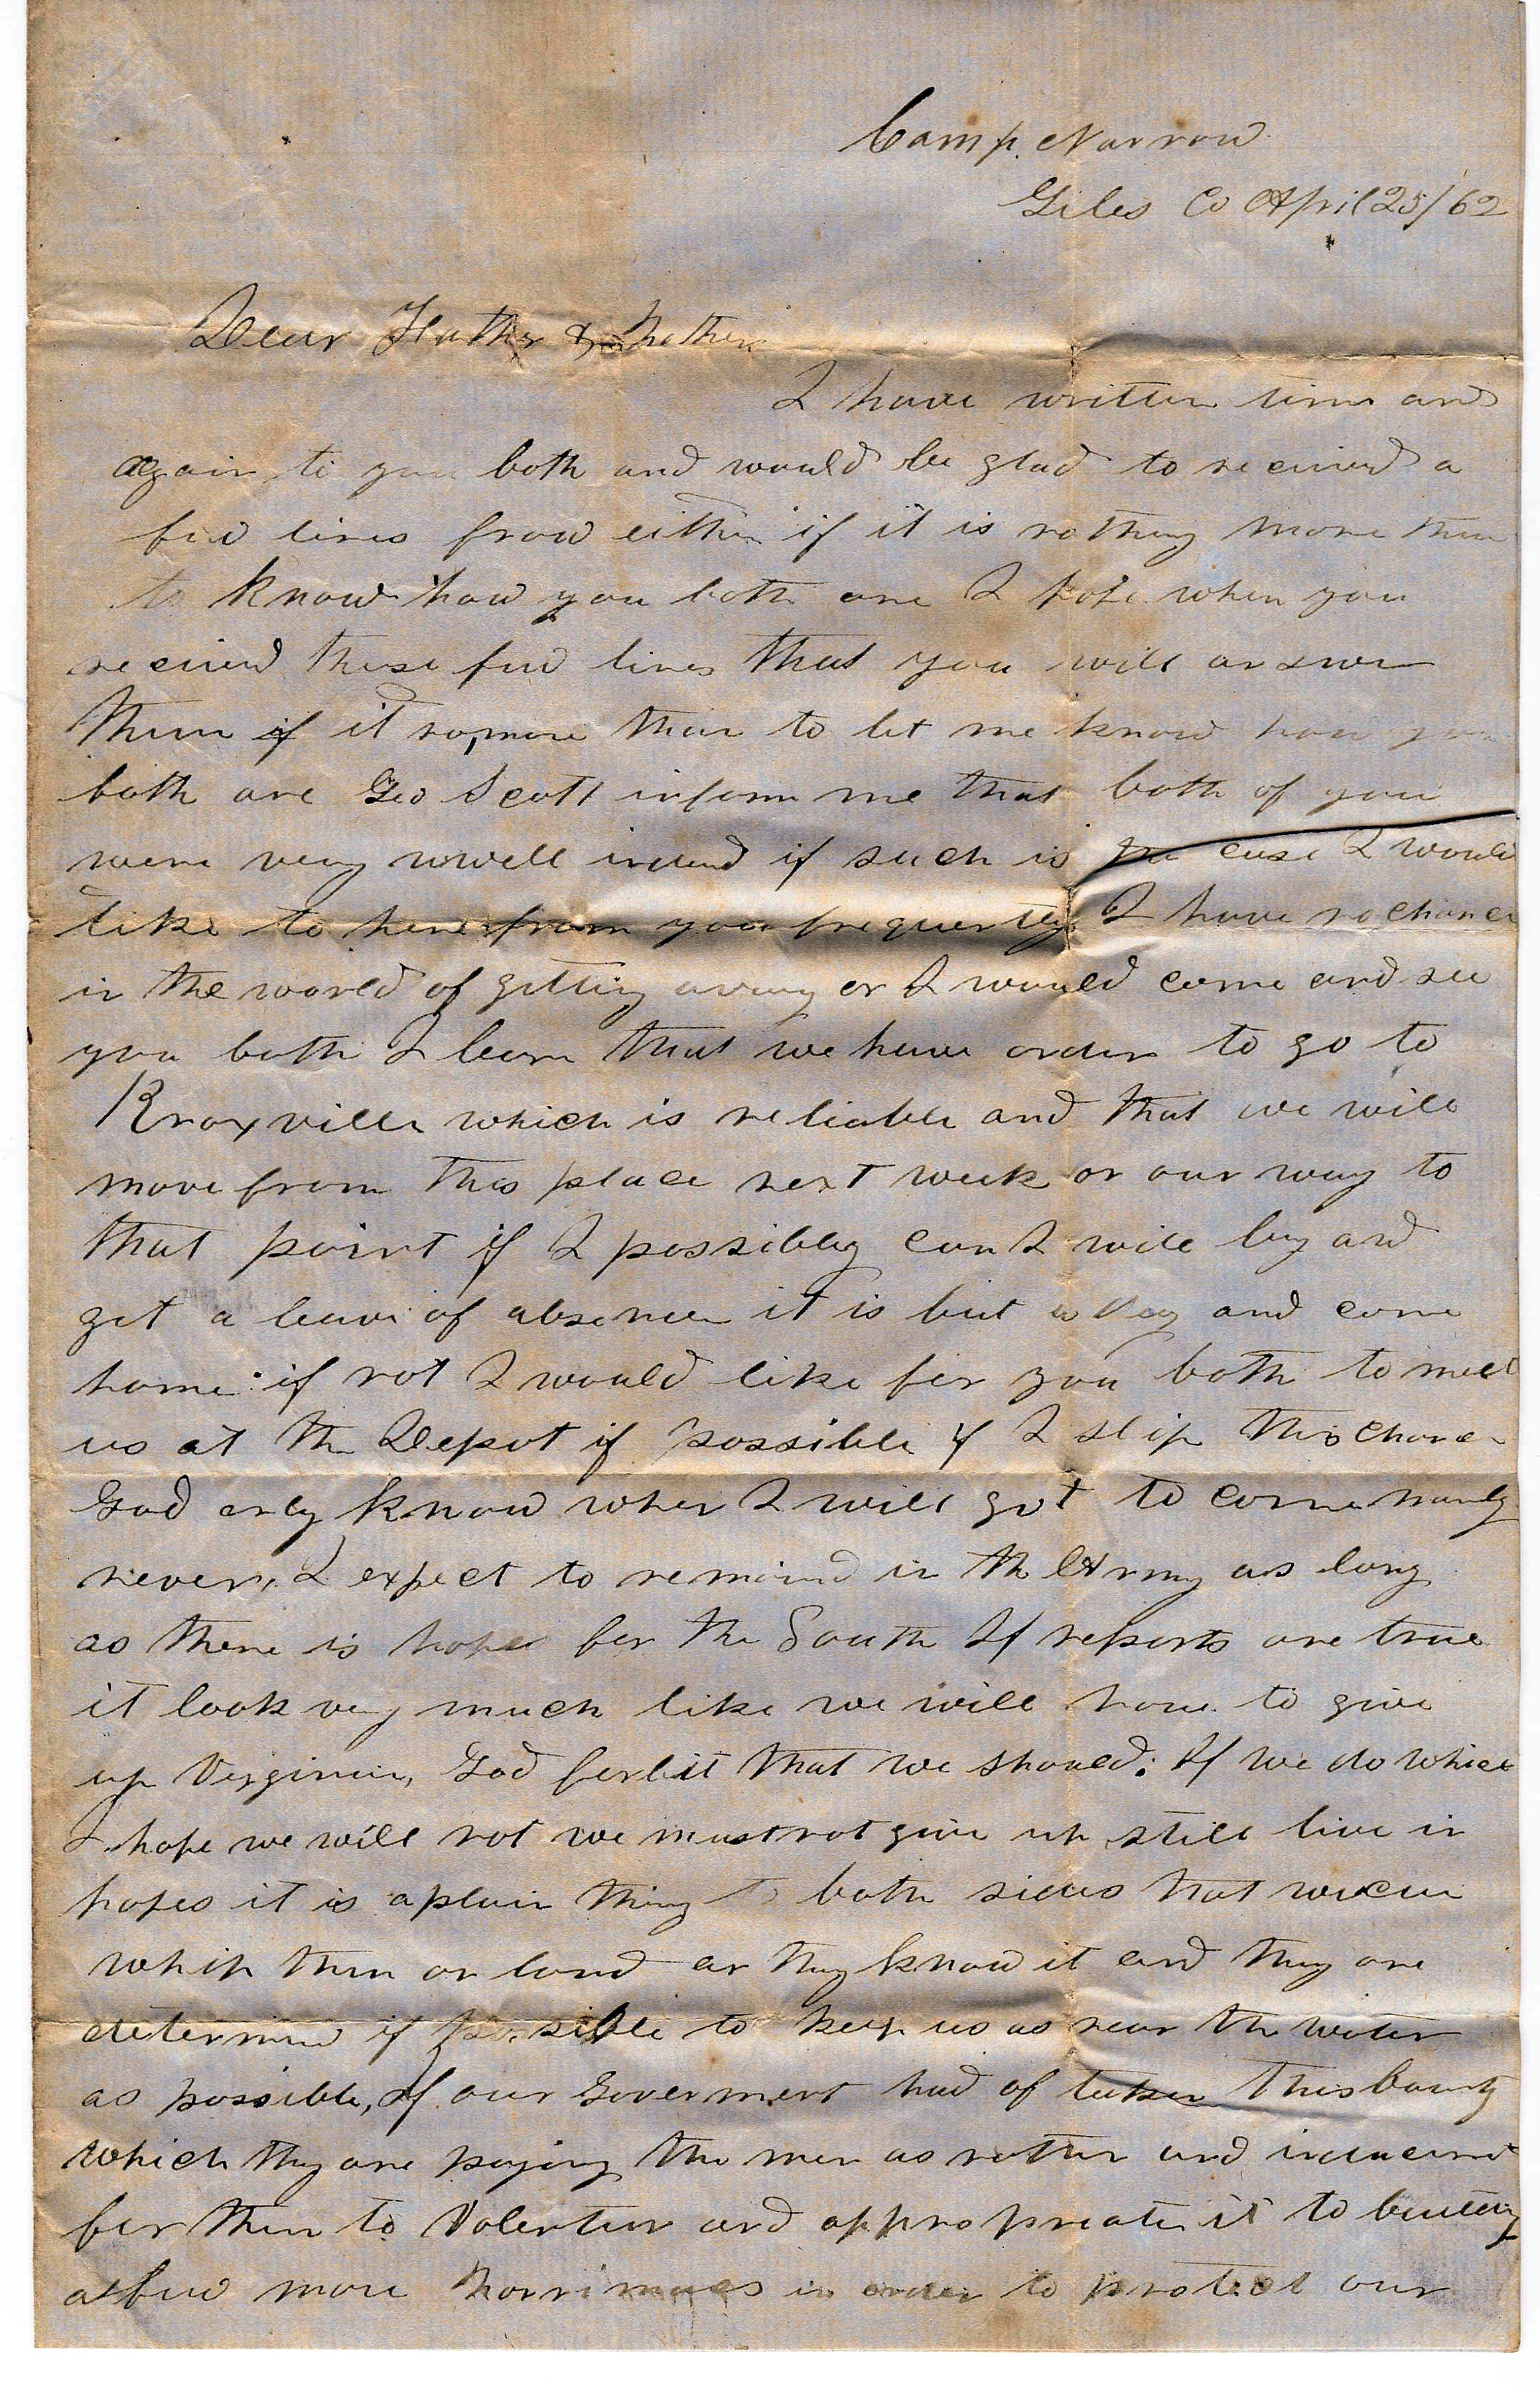 Camp. Narrow
Giles Co April 25/62
Dear Father & Mother
I have written time and
again to you both and would be glad to recieved a
few lines from either if it is nothing more than
to know how you both are I hope when you
recieved these few lines that you will answer
them if it no, more than to let me know how you
both are Geo Scott inform me that both of you
were very unwell indeed if such is the case I would
like to here from you frequently I have no chance
in the world of getting away or I would come and see
you both I learn that we have order to go to
Knoxville which is reliable and that we will
move from this place next week on our way to
that point if I possibly can I will try and
get a leave of absence it is but a day and come
home if not I would like for you both to meet
us at the Depot if possible if I slip this chance
God only know when I will get to come
never, I expect to remaind in the Army as long
as there is hopes for the South If reports are true
it look very much like we will have to give
up Virginia, God forbit that we should: If we do which
I hope we will not we must not give up still live in
hopes it is a plain thing to both sides that we can
whip them on land an they know it and they are
determind if possible to keep us as near the water
as possible, If our Goverment had of taken this bounty
which they are paying the men as rather and inducement
for them to Volenteer and appropriate it to building
a few more Merrimacs in order to protect our